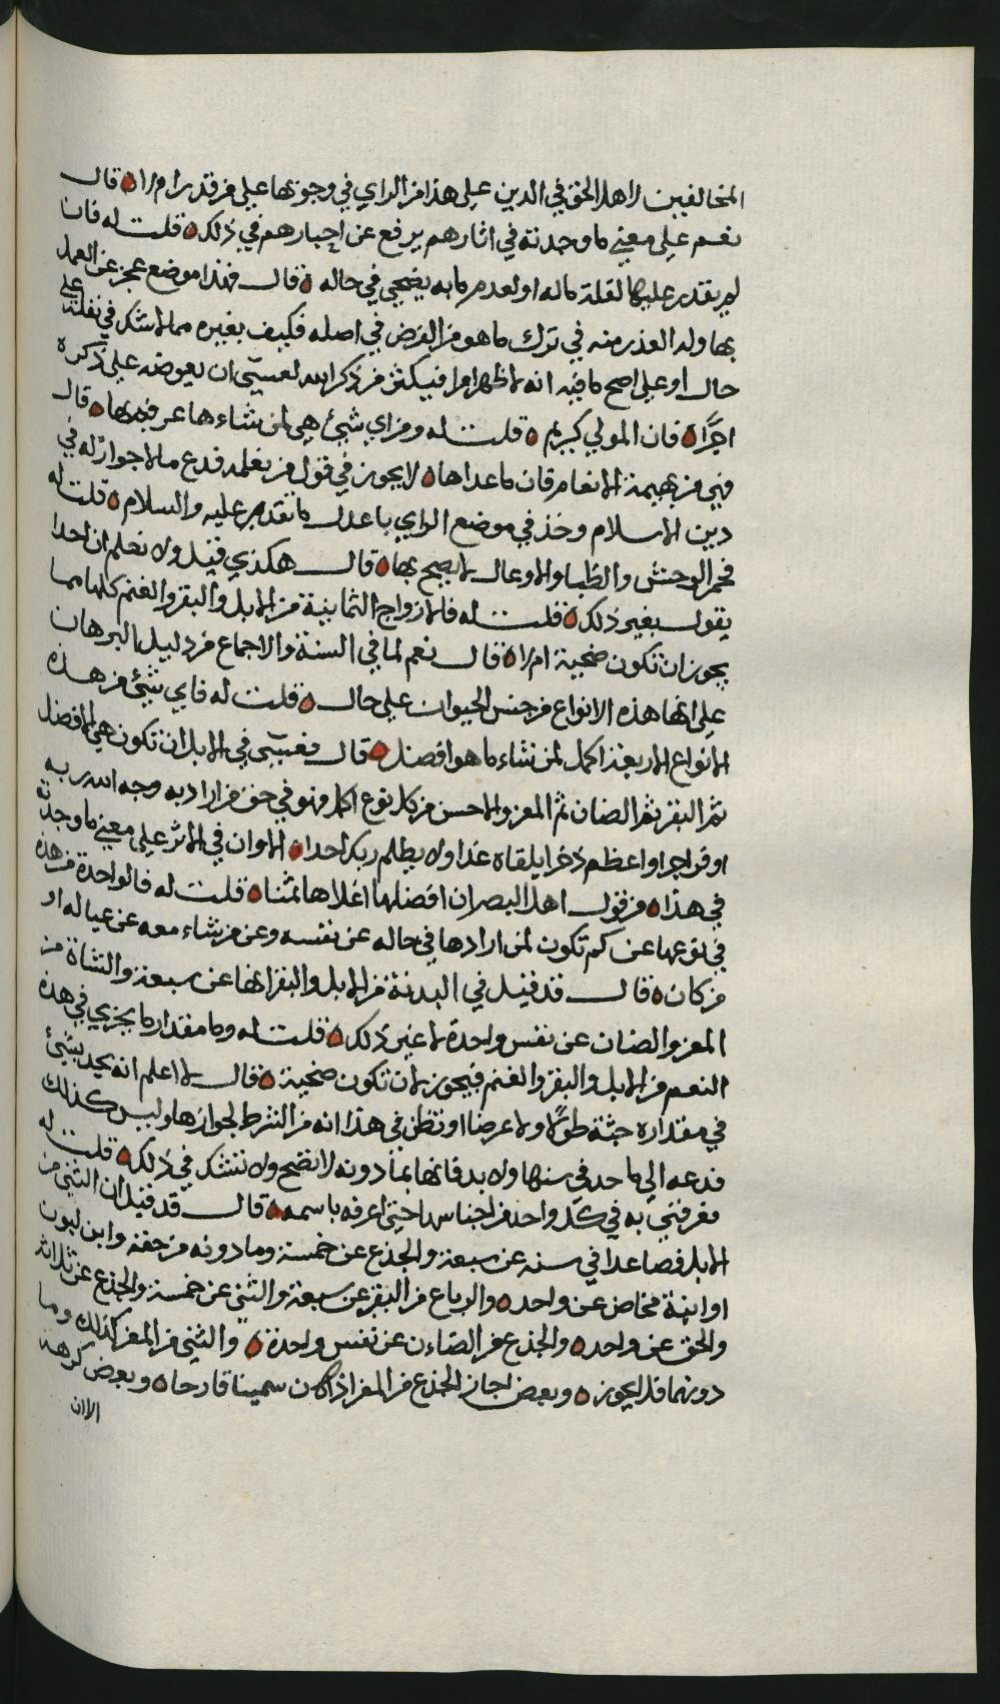 المخالفين لاهل الحق في الدين على هذا من الراي في وجوبها على من قدر ام لا ه قال
نعم على معنى ما وجدته في اثارهم يرفع عن اخبارهم في ذلك ه قلت له فان
لم يقدر عليها لقلة ماله او لعدم ما به يضحي في حاله ه قال فهذا موضع عجز عن العمل
بها وله العذر منه في ترك ما هو من الفرض في اصله فكيف بغيره مما لا شك في نفله على
حال او على اصح ما فيه انه لاظهر امرا فيكثر من ذكر الله لعسى ان يعوضه على ذكره
اجرًا ه فان المولى كريم ه قلت له ومن اي شيئ هي لمن شاءها عرفني بها ه قال
فهي من بهيمة الانعام فان ما عداها ه لا يجوز في قول من نعلمه فدع ما لا جواز له في
دين الاسلام وخذ في موضع الراي باعدل ما تقدر عليه والسلام ه قلت له
فحمر الوحش والظبا والاوعال لا يصح بها ه قال هكذي قيل ولا نعلم ان احدا
يقول بغير ذلك ه قلت له فالازواج الثمانية من الابل والبقر والغنم كلها مما
يجوز ان تكون ضحية ام لا ه قال نعم لما في السنة والاجماع من دليل البرهان
على انها هذه الانواع من جنس الحيوان على حال ه قلت له فاي شيئ من هذه
الانواع الاربعة اكمل لمن شاء ما هو افضل ه قال فعسى في الابل ان تكون هي الافضل
ثم البقر ثم الضان ثم المعز والاحسن من كل نوع اكمل فهو في حق من اراد به وجه الله ربه
اوفر اجرا واعظم ذخرا يلقاه غدا ولا يظلم ربك احدا ه الا وان في الاثر على معنى ما وجدته
في هذا ه من قول اهل البصر ان افضلها اغلاها ثمنا ه قلت له فالواحدة من هذه
في نوعها عن كم تكون لمن ارادها في حاله عن نفسه وعن من شاء معه عن عياله او
من كان ه قال قد قيل في البدنة من الابل والبقر انها عن سبعة والشاة من
المعز والضان عن نفس واحدة لا غير ذلك ه قلت له وما مقدار ما يجزي في هذه
النعم من الابل والبقر والغنم فيجوز لان تكون ضحية ه قال لا اعلم انه يحد بشيئ
في مقداره جثة طولًا ولا عرضا اوتظن في هذا انه من الشرط لجوازها وليس كذلك
فدعه الى ما حد في سنها ولا بد فانها بما دونه لا تضح ولا تشك في ذلك ه قلت له
فعرفني به في كل واحد من اجناسها حتى اعرفه باسمه ه قال قد قيل ان الثني من
الابل فصاعدا في سنه عن سبعة والجذع عن خمسة وما دونه من حقة وابن لبون
او ابنة مخاض عن واحد ه والرباع من البقر عن سبعة والثني عن خمسة والجذع عن ثلاثة
والحق عن واحد ه والجذع من الضاءن عن نفس واحدة ه والثني من المعز كذلك وما
دونهما فلا يجوز ه وبعض اجاز الجذع من المعز اذا كان سمينا قارحا ه وبعض كرهه
الا ان